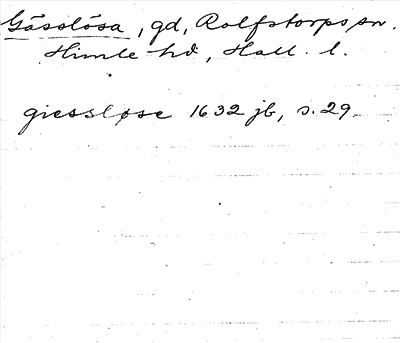 Gässlösa, gd, Rolfstorps sn.
Himle hd, Hall. l.
giessløse 1632 jb, s. 29.